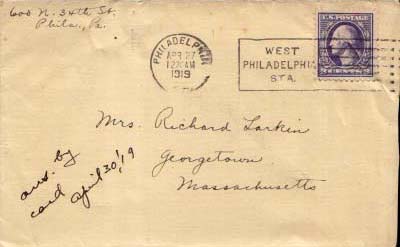 600 N. 34th St.
Phila., Pa.
PHILADELPHIA
APR 27
12 30 AM
1919
WEST
PHILADELPHIA
STA.
U.S. POSTAGE
3 CENTS 3
Mrs. Richard Larkin
Georgetown
Massachusetts
ans. by
card april 30/19